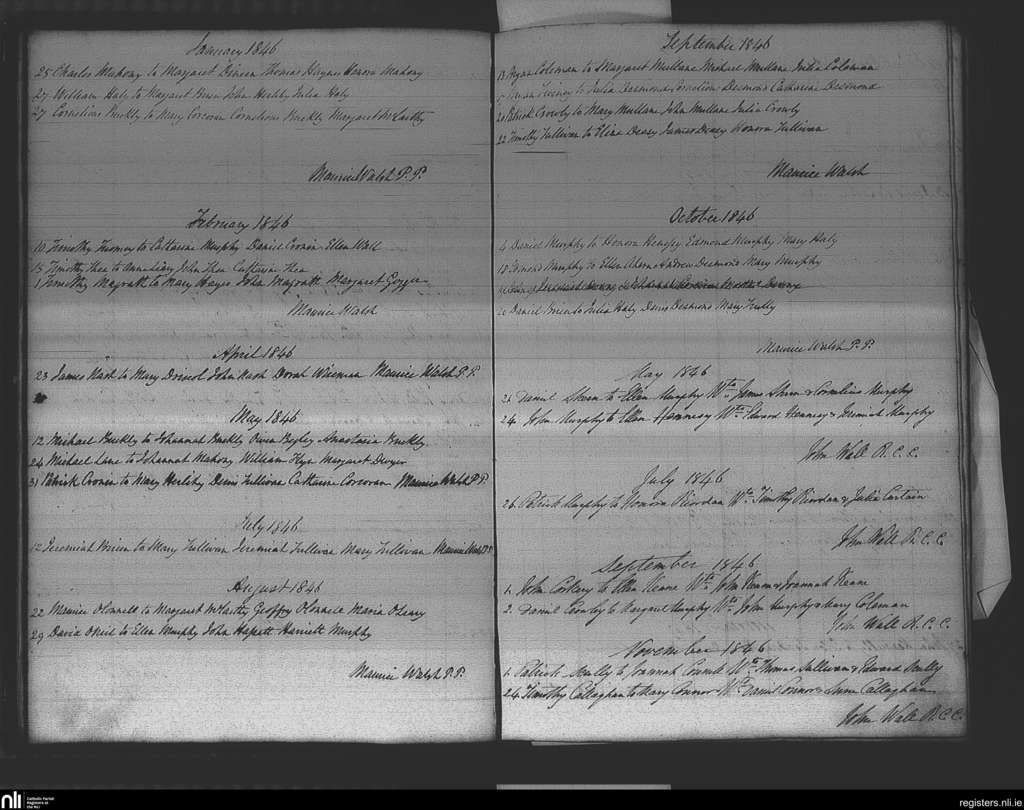 January 1846
25 Charles Mahony to Margaret Dineen Thomas Hayes Honora Mahony
27 William Haly to Margaret Brien John Herlihy Julia Haly
27 Cornelious Buckly to Mary Corcoran Cornelious Buckly Margaret McCarthy
Maurice Walsh P.P.
February 1846
10 Timothy Twomey to Catharine Murphy Daniel Cronin Ellen Wall
15 Timothy Shea to John Shea Catharine Shea
Timothy Magrath to Mary Hayes John Magrath Margaret
Maurice Walsh
April 1846
23 James Nash to Mary Driscol John Nash Dorah Wiseman Maurice Walsh P.P.
May 1846
12 Michael Buckly to Johannah Buckly Owen Begley Anastasia Buckly
24 Michael Lane to Johannah Mahony William Margaret Dwyer
31 Patrick Cronin to Mary Herlihy Denis Sullivan Catharine Corcoran Maurice Walsh P.P.
July 1846
12 Jeremiah Brien to Mary Sullivan Jeremiah Sullivan Mary Sullivan Maurice Walsh P.P.
August 1846
22 Maurice OConnell to Margaret McCarthy Geoffry OConnell Maria OLeary
29 David ONeil to Ellen Murphy John Harriett Murphy
Maurice Walsh P.P.
September 1846
13 Coleman to Margaret Mullane Michael Mullane Julia Coleman
to Julia Desmond Cornelious Desmond Catharine Desmond
20 Patrick Crowly to Mary Mullane John Mullane Julia Crowly
22 Timothy Sullivan to Eliza Deasy James Deasy Honora Sullivan
Maurice Walsh
October 1846
4 Daniel Murphy to Honora Henesey Edmond Murphy Mary Haly
10 Edmond Murphy to Ellen Ahern Andrew Desmond Mary Murphy
Daniel Brien to Julia Haly Denis Desmond Mary Scully
Maurice Walsh P.P.
May 1846
21 Daniel to Ellen Murphy Wts James & Cornelius Murphy
24 John Murphy to Ellen Hennesy Wts Edward Hennesy & Jeremiah Murphy
John Wall R.C.C.
July 1846
26 Patrick Murphy to Honora Riordan Wts Timothy Riordan & Julia Curtain
John Wall R.C.C.
September 1846
1. John Corkery to Ellen Keane Wts John & Joannah Keane
2. Daniel Crowley to Margaret Murphy Wts John Murphy & Mary Coleman
John Wall R.C.C.
November 1846
1. Patrick Scully to Joannah Connell Wts Thomas Sullivan & Edward Scully
24 Timothy Callaghan to Mary Connor Wts Daniel Connor & Callaghan
John Wall R.C.C.
nli
Catholic Parish
Registers at
the NLI
registers.nli.ie